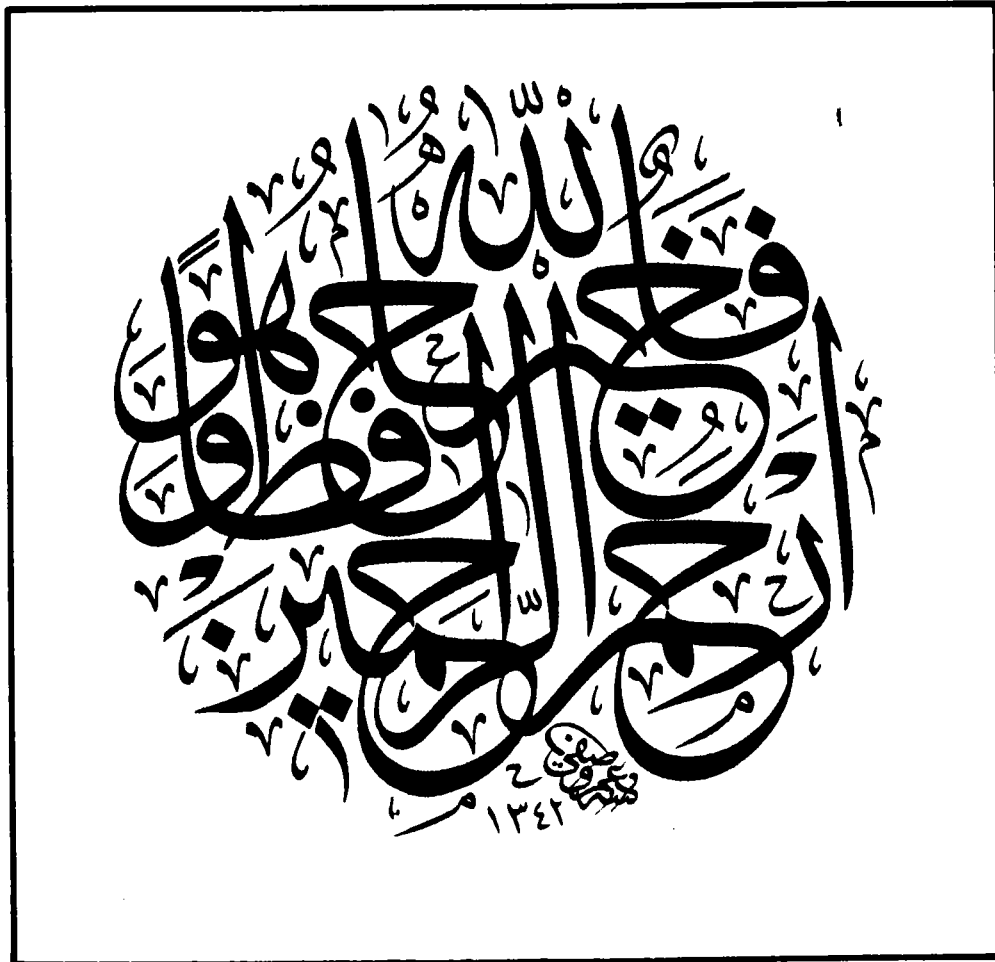 فَاللَّهُ خَيْرٌ حَافِظًا وَهُوَ أَرْحَمُ الرَّاحِمِينَ
١٣٤٢